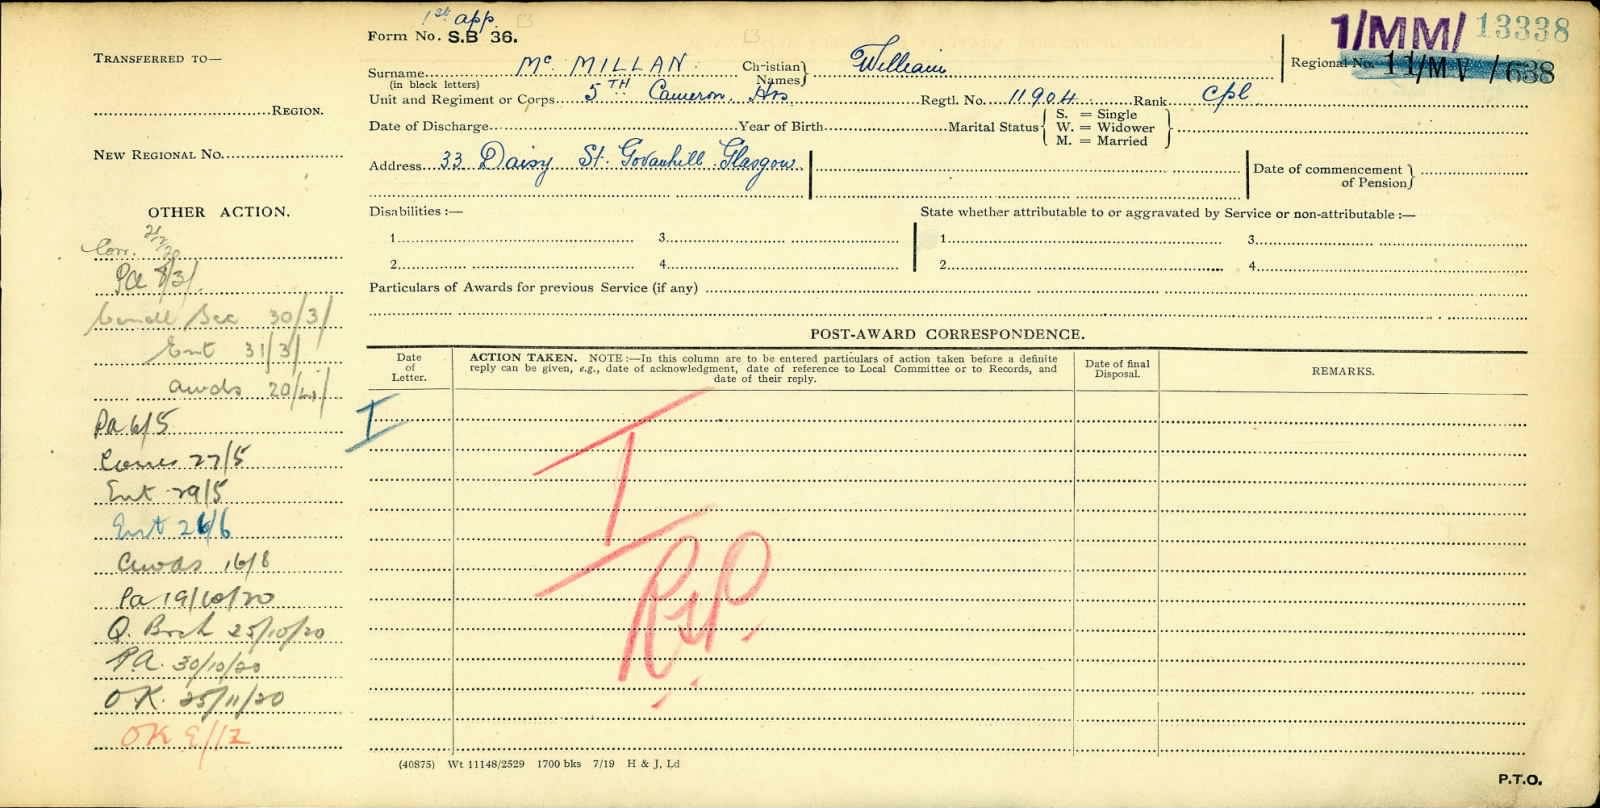 1st app.
Form No. S.B 36.
1/MM/ 13338
Regional No. 11/MV/638
TRANSFERRED TO—
REGION.
NEW REGIONAL No.
Surname Mc MILLAN
(in block letters)
Christian Names} William
Unit and Regiment or Corps 5TH Cameron Hrs
Regtl. No. 11904
Rank Cpl
Date of Discharge
Year of Birth
Marital Status { S. = Single
W. = Widower
M. = Married }
Address 33 Daisy St. Govanhill Glasgow
Date of commencement of Pension}
Disabilities :—
1 3
2 4
State whether attributable to or aggravated by Service or non-attributable :—
1 3
2 4
Particulars of Awards for previous Service (if any)
OTHER ACTION.
Corr.
PA
30/3/
Ent 31/3/
awds 20/4/
Pa 6/5
27/5
Ent 29/5
Ent 26/6
awds 16/8
Pa 19/10/20
Q. 25/10/20
PA. 30/10/20
OK. 25/11/20
OK 9/12
POST-AWARD CORRESPONDENCE.
Date of Letter.
ACTION TAKEN. NOTE :—In this column are to be entered particulars of action taken before a definite
reply can be given, e.g., date of acknowledgment, date of reference to Local Committee or to Records, and
date of their reply.
Date of final Disposal.
REMARKS.
I
I
(40875) Wt 11148/2529 1700 bks 7/19 H & J, Ld
P.T.O.